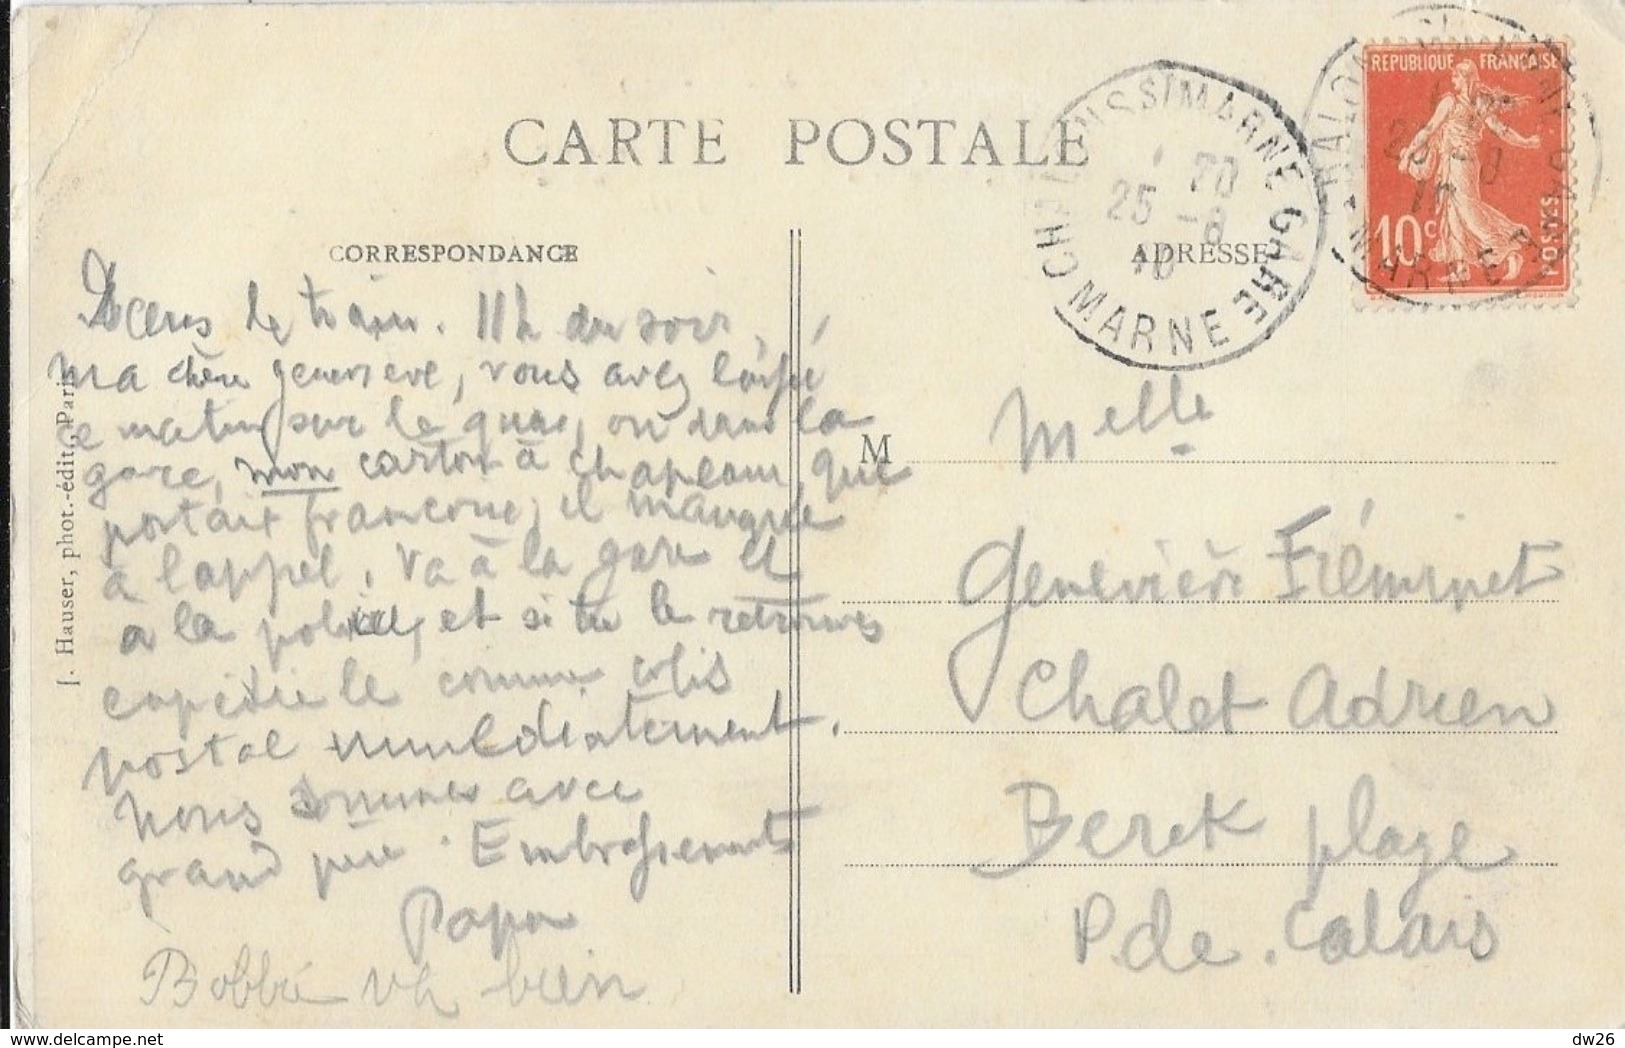 CARTE POSTALE
CORRESPONDANCE
Dans le train. 11h du soir,
ma chère Geneviève, vous avez laissé
ce matin sur le quai, ou dans la
gare, mon carton à chapeau, que
portait Francone, il manque
à l'appel, va à la gare et
à la police, et si tu le retrouves
expédie le comme colis
postal immédiatement.
Nous sommes avec
grand père. Embrassements
Papa
Bobbé va bien
J. Hauser, phot.-édit., Paris
ADRESSE
M elle
Geneviève Fréminet
Chalet Adrien
Berck plage
P. de. Calais
CHALONS S/MARNE GARE
25 -8
MARNE
REPUBLIQUE FRANÇAISE
10c
POSTES
MARNE
dw26